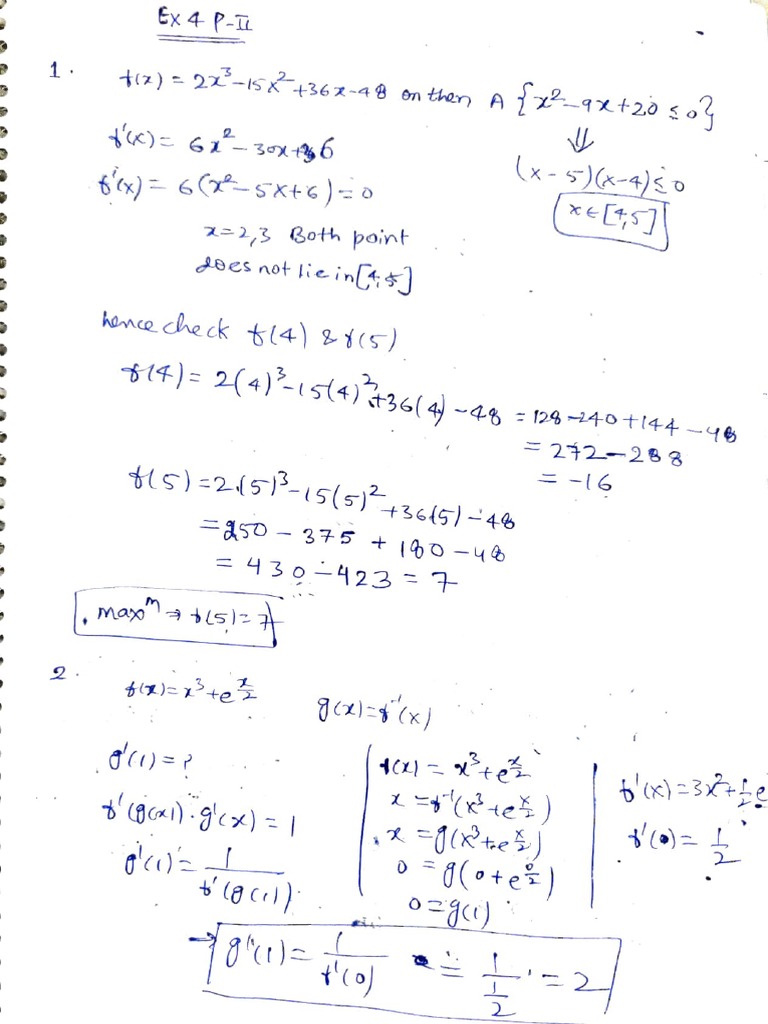 Ex 4 P-II
1. f(x) = 2x³-15x²+36x-48 on then A {x²-9x+20 ≤ 0}
⇓
f'(x) = 6x²-30x+36
(x-5)(x-4) ≤ 0
f'(x) = 6(x²-5x+6) = 0
x ∈ [4,5]
x=2,3 Both point
does not lie in [4,5]
hence check f(4) & f(5)
f(4) = 2(4)³-15(4)²+36(4)-48 = 128-240+144-48
= 272-288
= -16
f(5) = 2.(5)³-15(5)²+36(5)-48
= 250 - 375 + 180 - 48
= 430 - 423 = 7
maxᵐ ⇒ f(5) = 7
2. f(x) = x³+e^{x/2} g(x) = f⁻¹(x)
g'(1) = ?
f'(g(x)).g'(x) = 1
g'(1) = 1/f'(g(1))
f(x) = x³+e^{x/2}
x = f⁻¹(x³+e^{x/2})
x = g(x³+e^{x/2})
0 = g(0+e^{0/2})
0 = g(1)
f'(x) = 3x²+½e
f'(0) = 1/2
→ g'(1) = 1/f'(0) = 1/(1/2) = 2